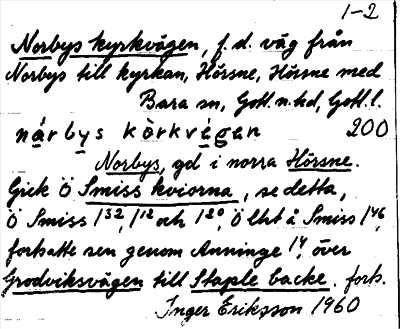 1-2
Norbys kyrkvägen, f.d. väg från
Norbys till kyrkan, Hörsne, Hörsne med
Bara sn, Gotl. n. hd, Gotl. l.
nårbys kòrkvégən 200
Norbys, gd i norra Hörsne.
Gick Ö Smiss kviorna, se detta,
Ö Smiss 1³², 1¹² och 1²⁰, Ö lht å Smiss 1⁴⁶,
fortsatte sen genom Anninge 1⁴, över
Grodviksvägen till Staple backe. forts.
Inger Eriksson 1960